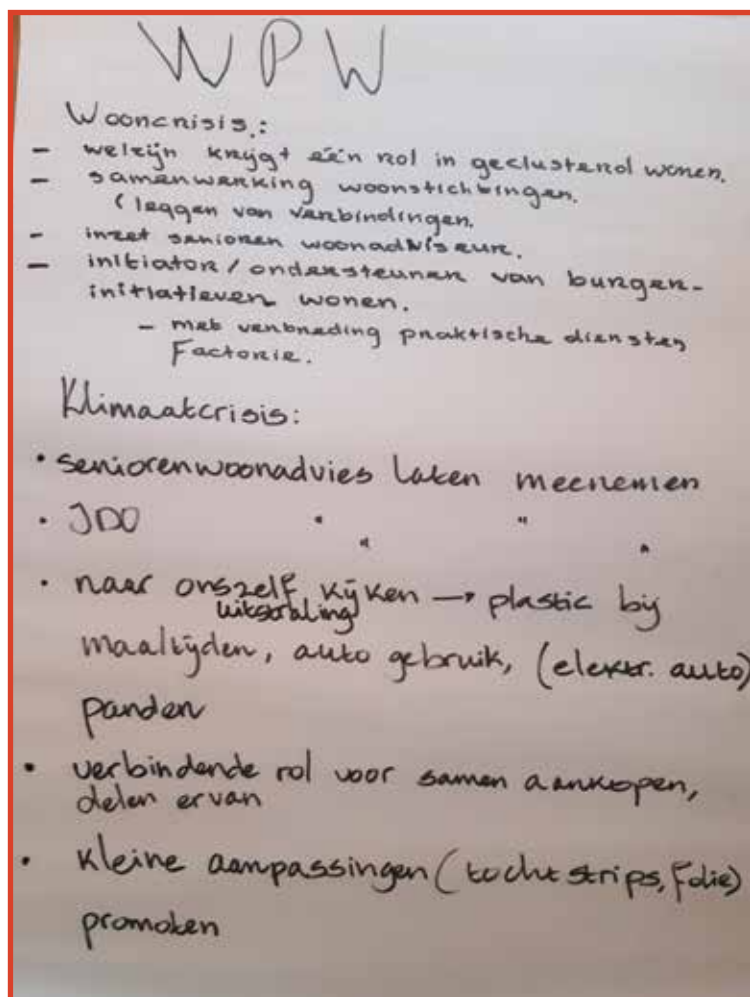 WPW
Wooncrisis:
- welzijn krijgt één rol in geclusterd wonen.
- samenwerking woonstichtingen.
(leggen van verbindingen.
- inzet senioren woonadviseur.
- initiator/ondersteuner van burger-
initiatieven wonen.
- met verbreding praktische diensten
Factorie.
Klimaatcrisis:
• seniorenwoonadvies laten meenemen
• JDO " " " "
• naar onszelf kijken → plastic bij
uitstraling
maaltijden, auto gebruik, (elektr. auto)
panden
• verbindende rol voor samen aankopen,
delen ervan
• kleine aanpassingen (tochtstrips, folie)
promoten